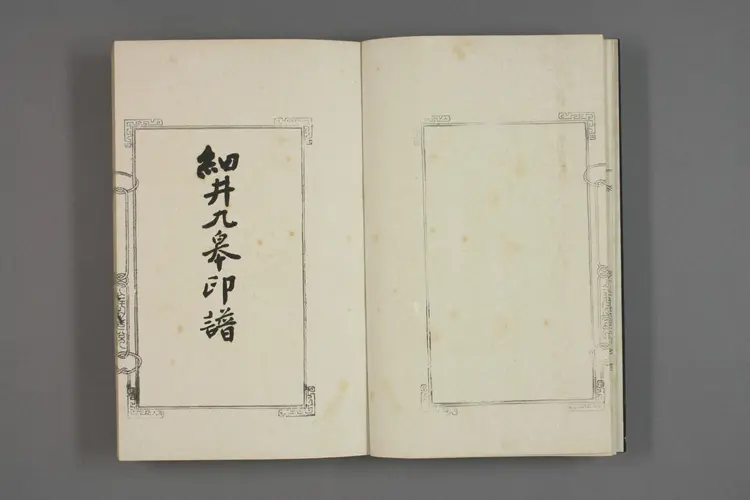 細井九皋印譜